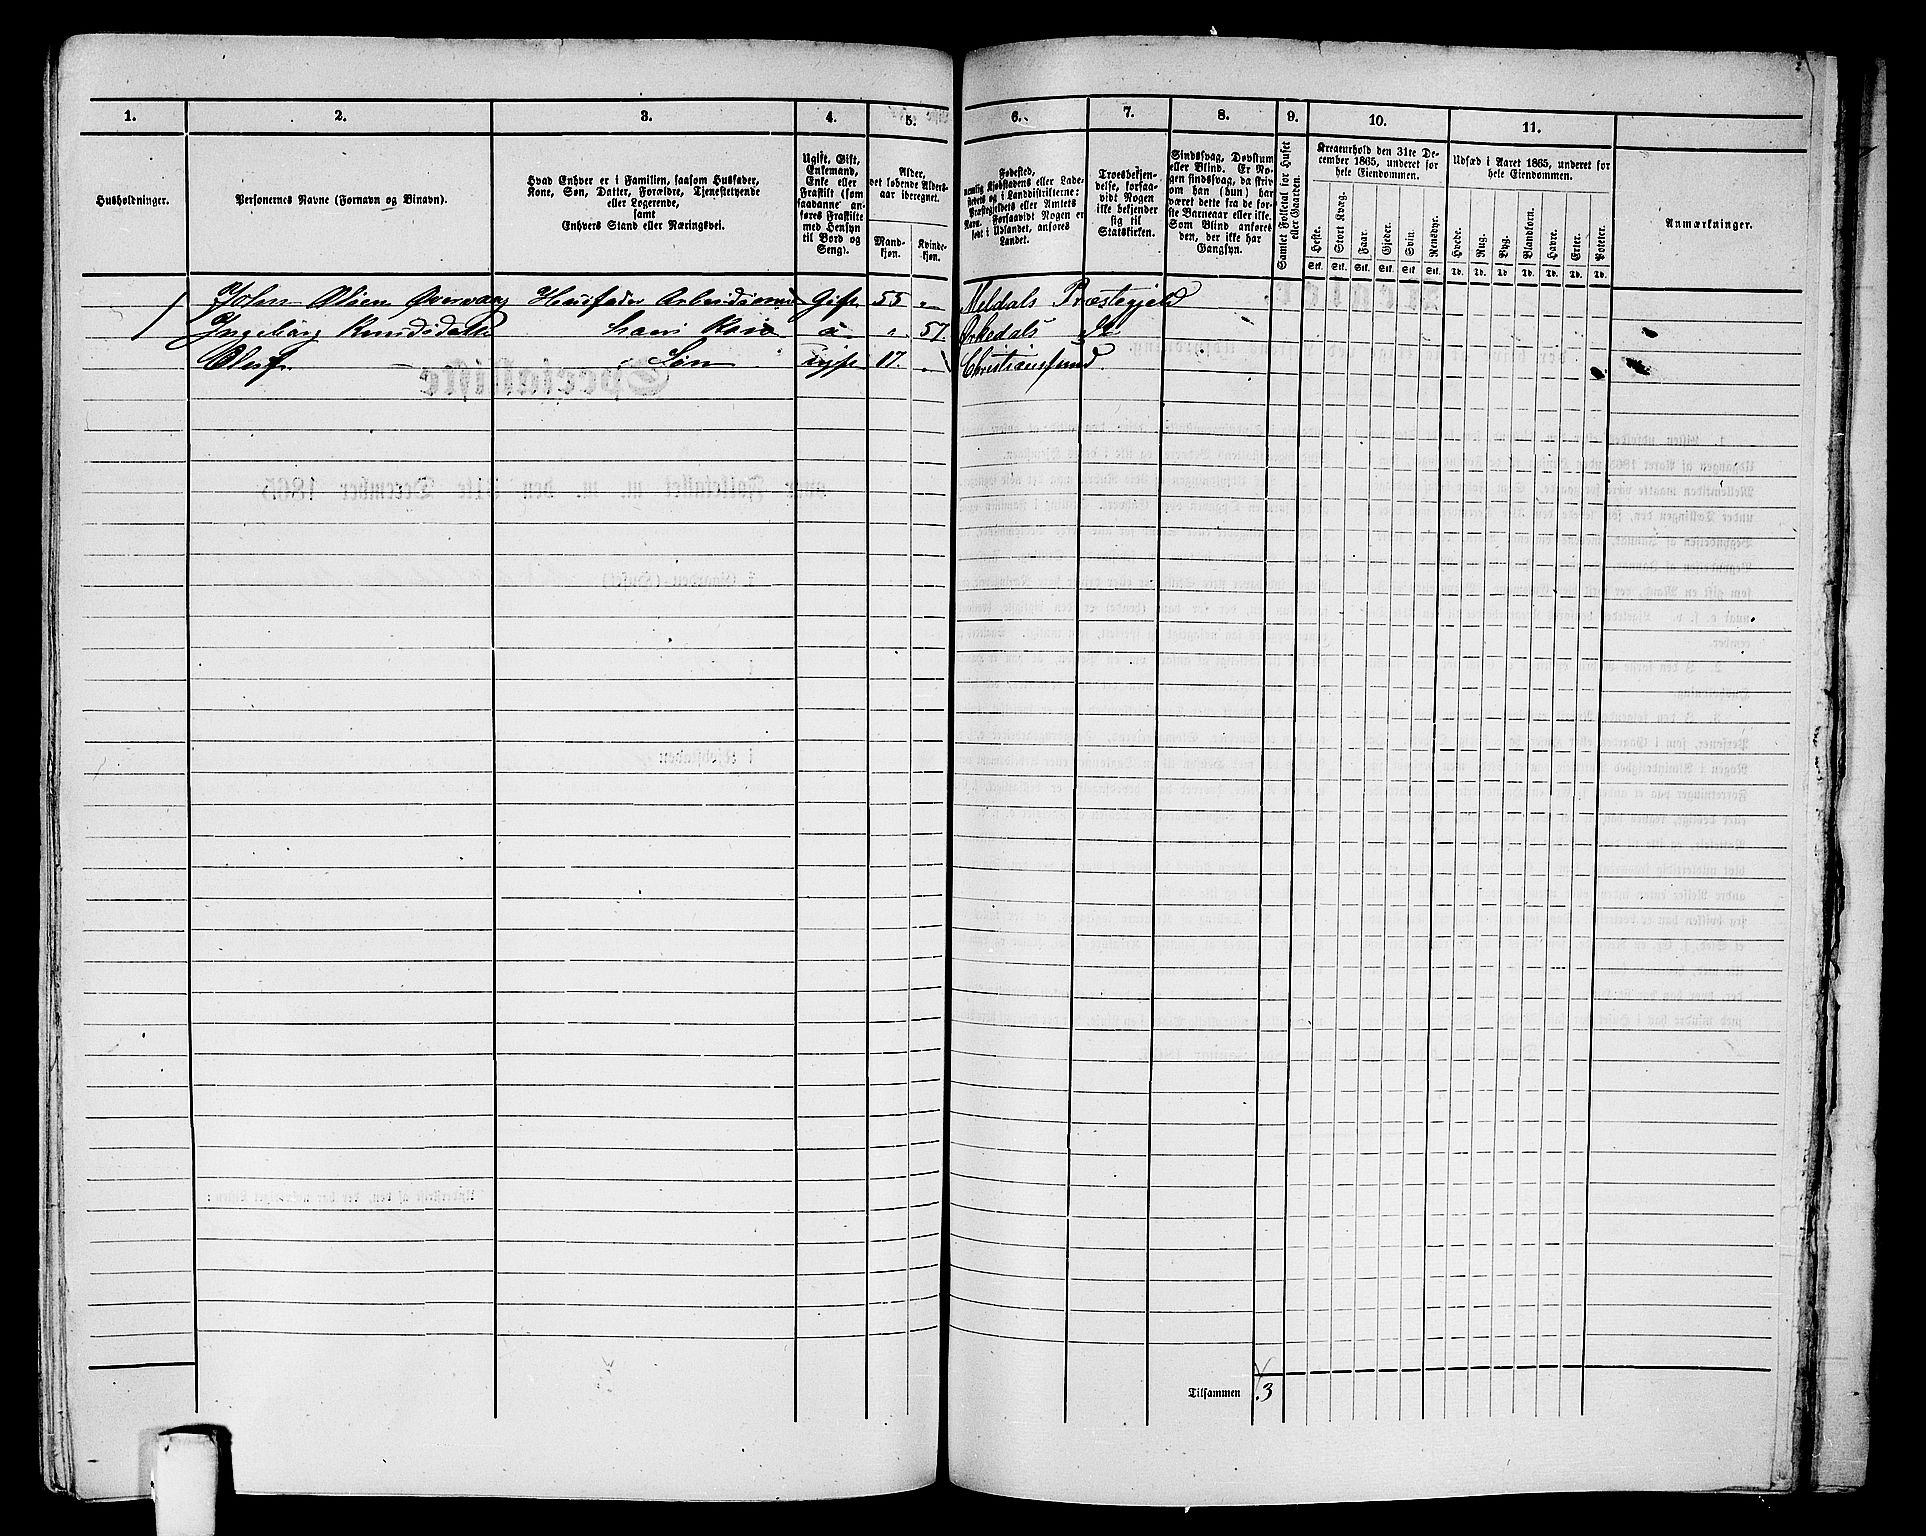 1.
2.
3.
4.
5.
6.
7.
8.
9.
10.
11.
Husholdninger.
Personernes Navne (Fornavn og Binavn).
Hvad Enhver er i Familien, saasom Husfader,
Kone, Søn, Datter, Forældre, Tjenestetyende
eller Logerende,
samt
Enhvers Stand eller Næringsvei.
Ugift, Gift,
Enkemand,
Enke eller
Fraskilt (som
saadanne anføres Fraskilte
med Hensyn
til Bord og
Seng).
Alder,
det løbende Alders-
aar iberegnet.
Mand-
kjøn.
Kvinde-
kjøn.
Fødested,
nemlig Kjøbstadens eller Lade-
stedets og i Landdistrikterne:
Præstegjeldets eller Amtets
Navn. Forsaavidt Nogen er
født i Udlandet, anføres
Landet.
Troesbekjen-
delse, forsaa-
vidt Nogen
ikke bekjender
sig til
Statskirken.
Sindssvag, Døvstum
eller Blind. Er No-
gen sindssvag, da skriv
om han (hun) har
været dette fra de før-
ste Barneaar eller ikke.
Som Blind anføres
den, der ikke har
Gangsyn.
Samlet Folketal for Huset
eller Gaarden.
Kreaturhold den 31te De-
cember 1865, underet for
hele Eiendommen.
Heste.
Stort Kvæg.
Faar.
Gjeder.
Svin.
Rensdyr.
Stk. Stk. Stk. Stk. Stk. Stk.
Udsæd i Aaret 1865, underet for
hele Eiendommen.
Hvede.
Rug.
Byg.
Blandkorn.
Havre.
Erter.
Poteter.
Td. Td. Td. Td. Td. Td. Td.
Anmærkninger.
John Olsen Husfader Gift 55 " Meldals Præstegjeld
Ingebørg Knudsdatter hans Kone " 57. Orkedals
Oluf Søn ugift 17. " Christianssund
Tilsammen 3